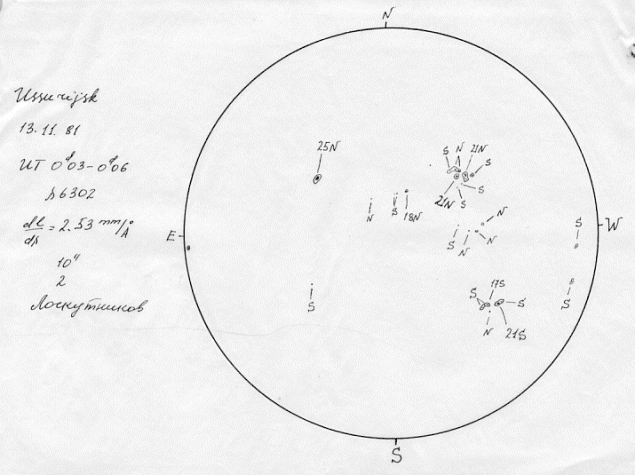 N
Ussurijsk
13.11.81
UT 0ʰ03-0ʰ06
λ6302
dl/dλ = 2.53 mm/Å
10"
2
Лоскутников
E
W
25N
S N 21N
S
21N S
S
N S 18N
N
S N N
S
S
S
17S
S S
N 21S
S
S